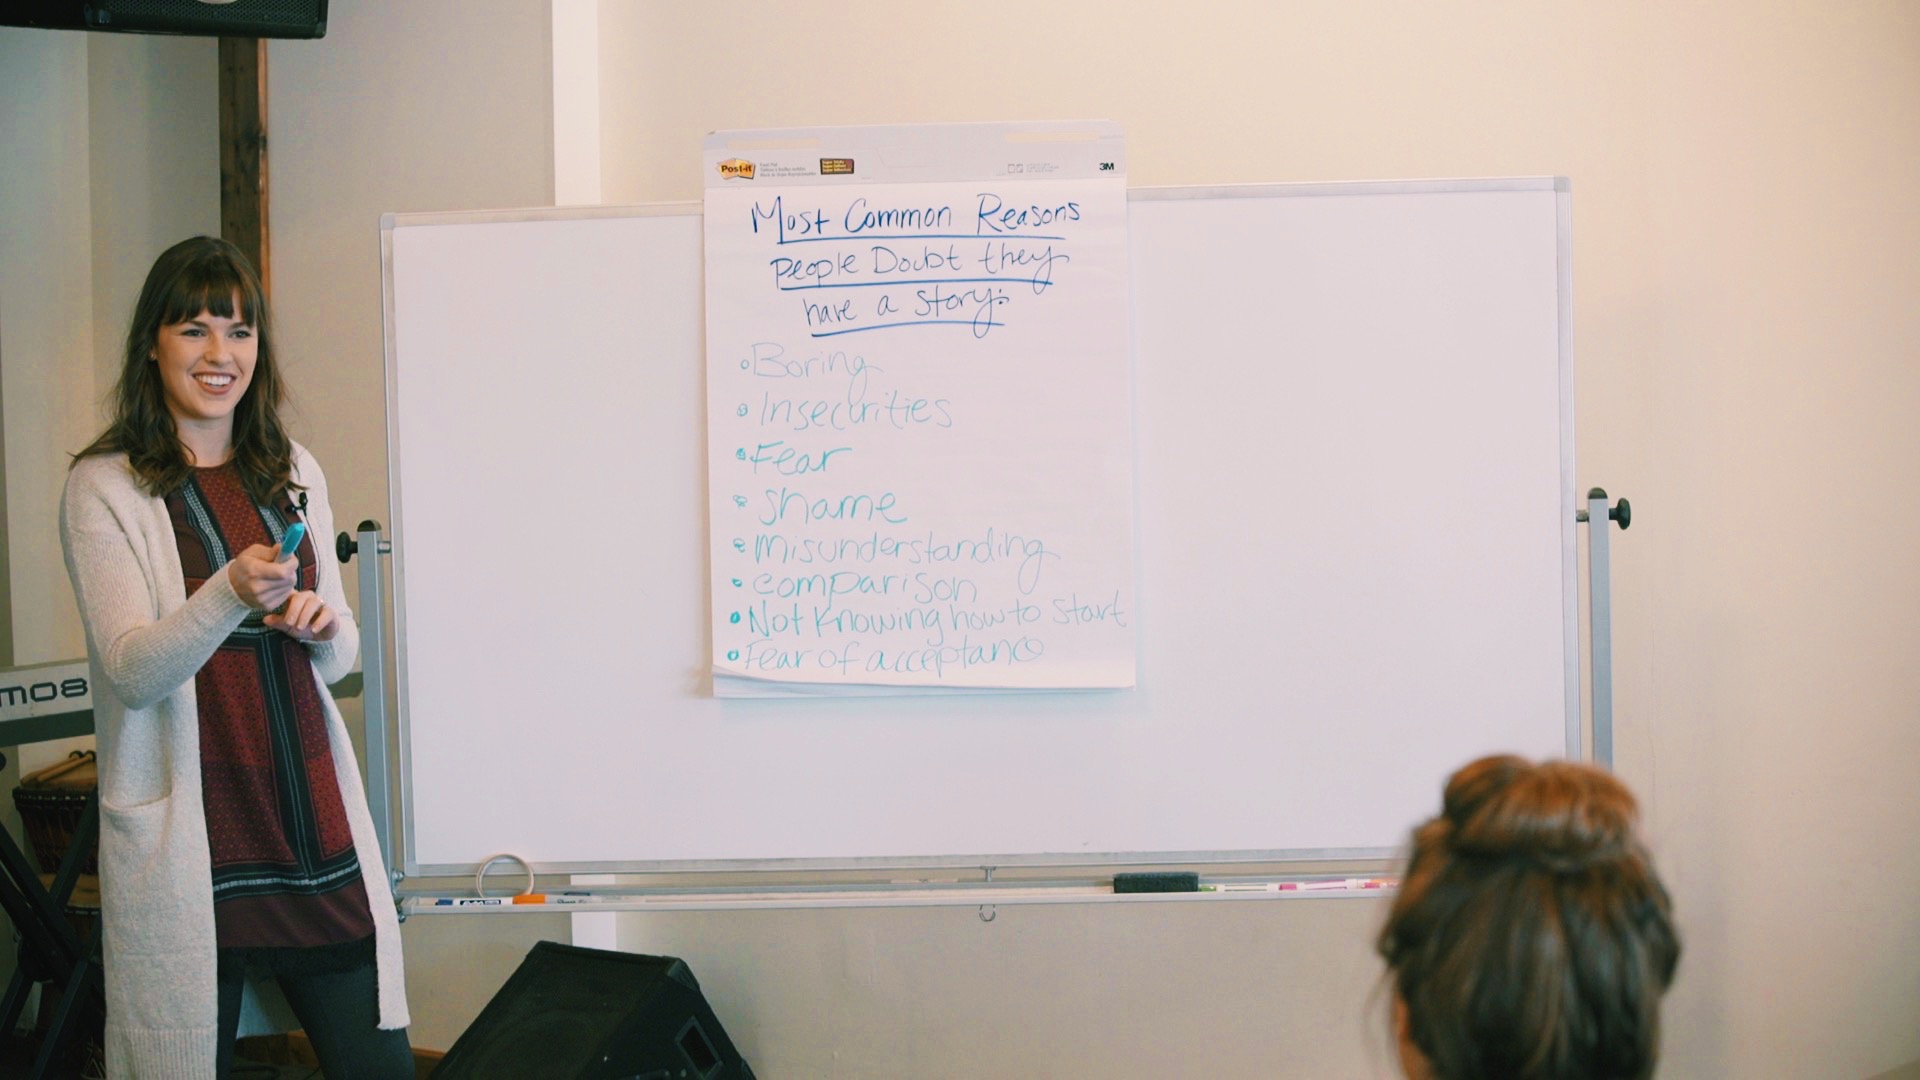 Post-it
3M
Most Common Reasons
People Doubt they
have a story:
Boring
Insecurities
Fear
Shame
Misunderstanding
comparison
Not Knowing how to Start
Fear of acceptance
mo8